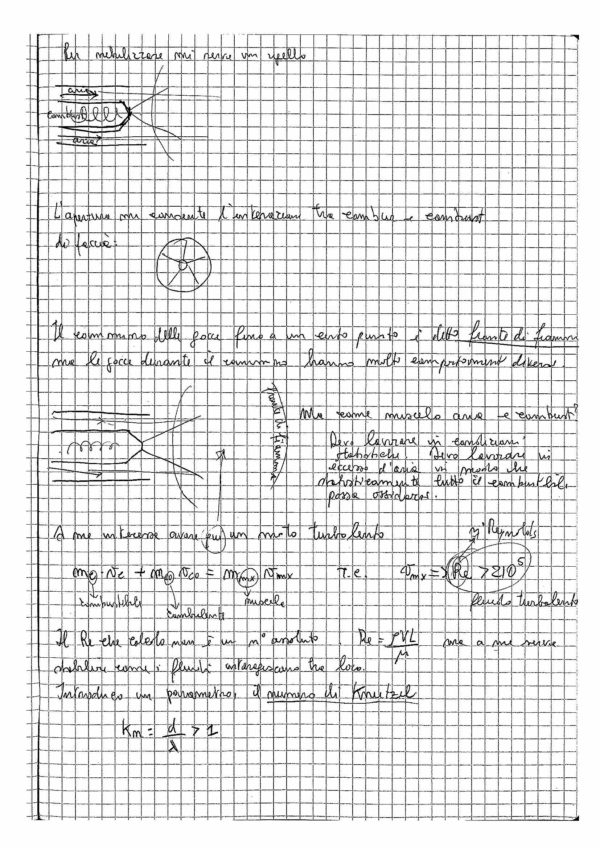 Per nebulizzare mi serve un ugello
aria
combust
aria
L'apertura mi consente l'interazioni tra combur e combust
di facciò:
Il cammino delle gocce fino a un certo punto è detto fronte di fiamma
ma le gocce durante il cammino hanno molti comportament diversi.
Fronte di fiamma
Ma come miscelo aria e combust?
Devo lavorare in condizioni
statistiche. Devo lavorare in
eccesso d'aria in modo che
statisticamente tutto il combustibile
possa ossidarsi.
A me interessa avere qui un moto turbolento
n° Reynolds
mc · vc + mco vco = mmx vmx T.c. vmx = x Re > 2 10⁵
combustibile
comburenti
miscela
fluido turbolento
Il Re che calcolo non è un n° assoluto. Re = ρVL/μ ma a me serve
stabilire come i fluidi interagiscano tra loro.
Introduco un parametro, il numero di Knutzel
Kn = d/λ > 1